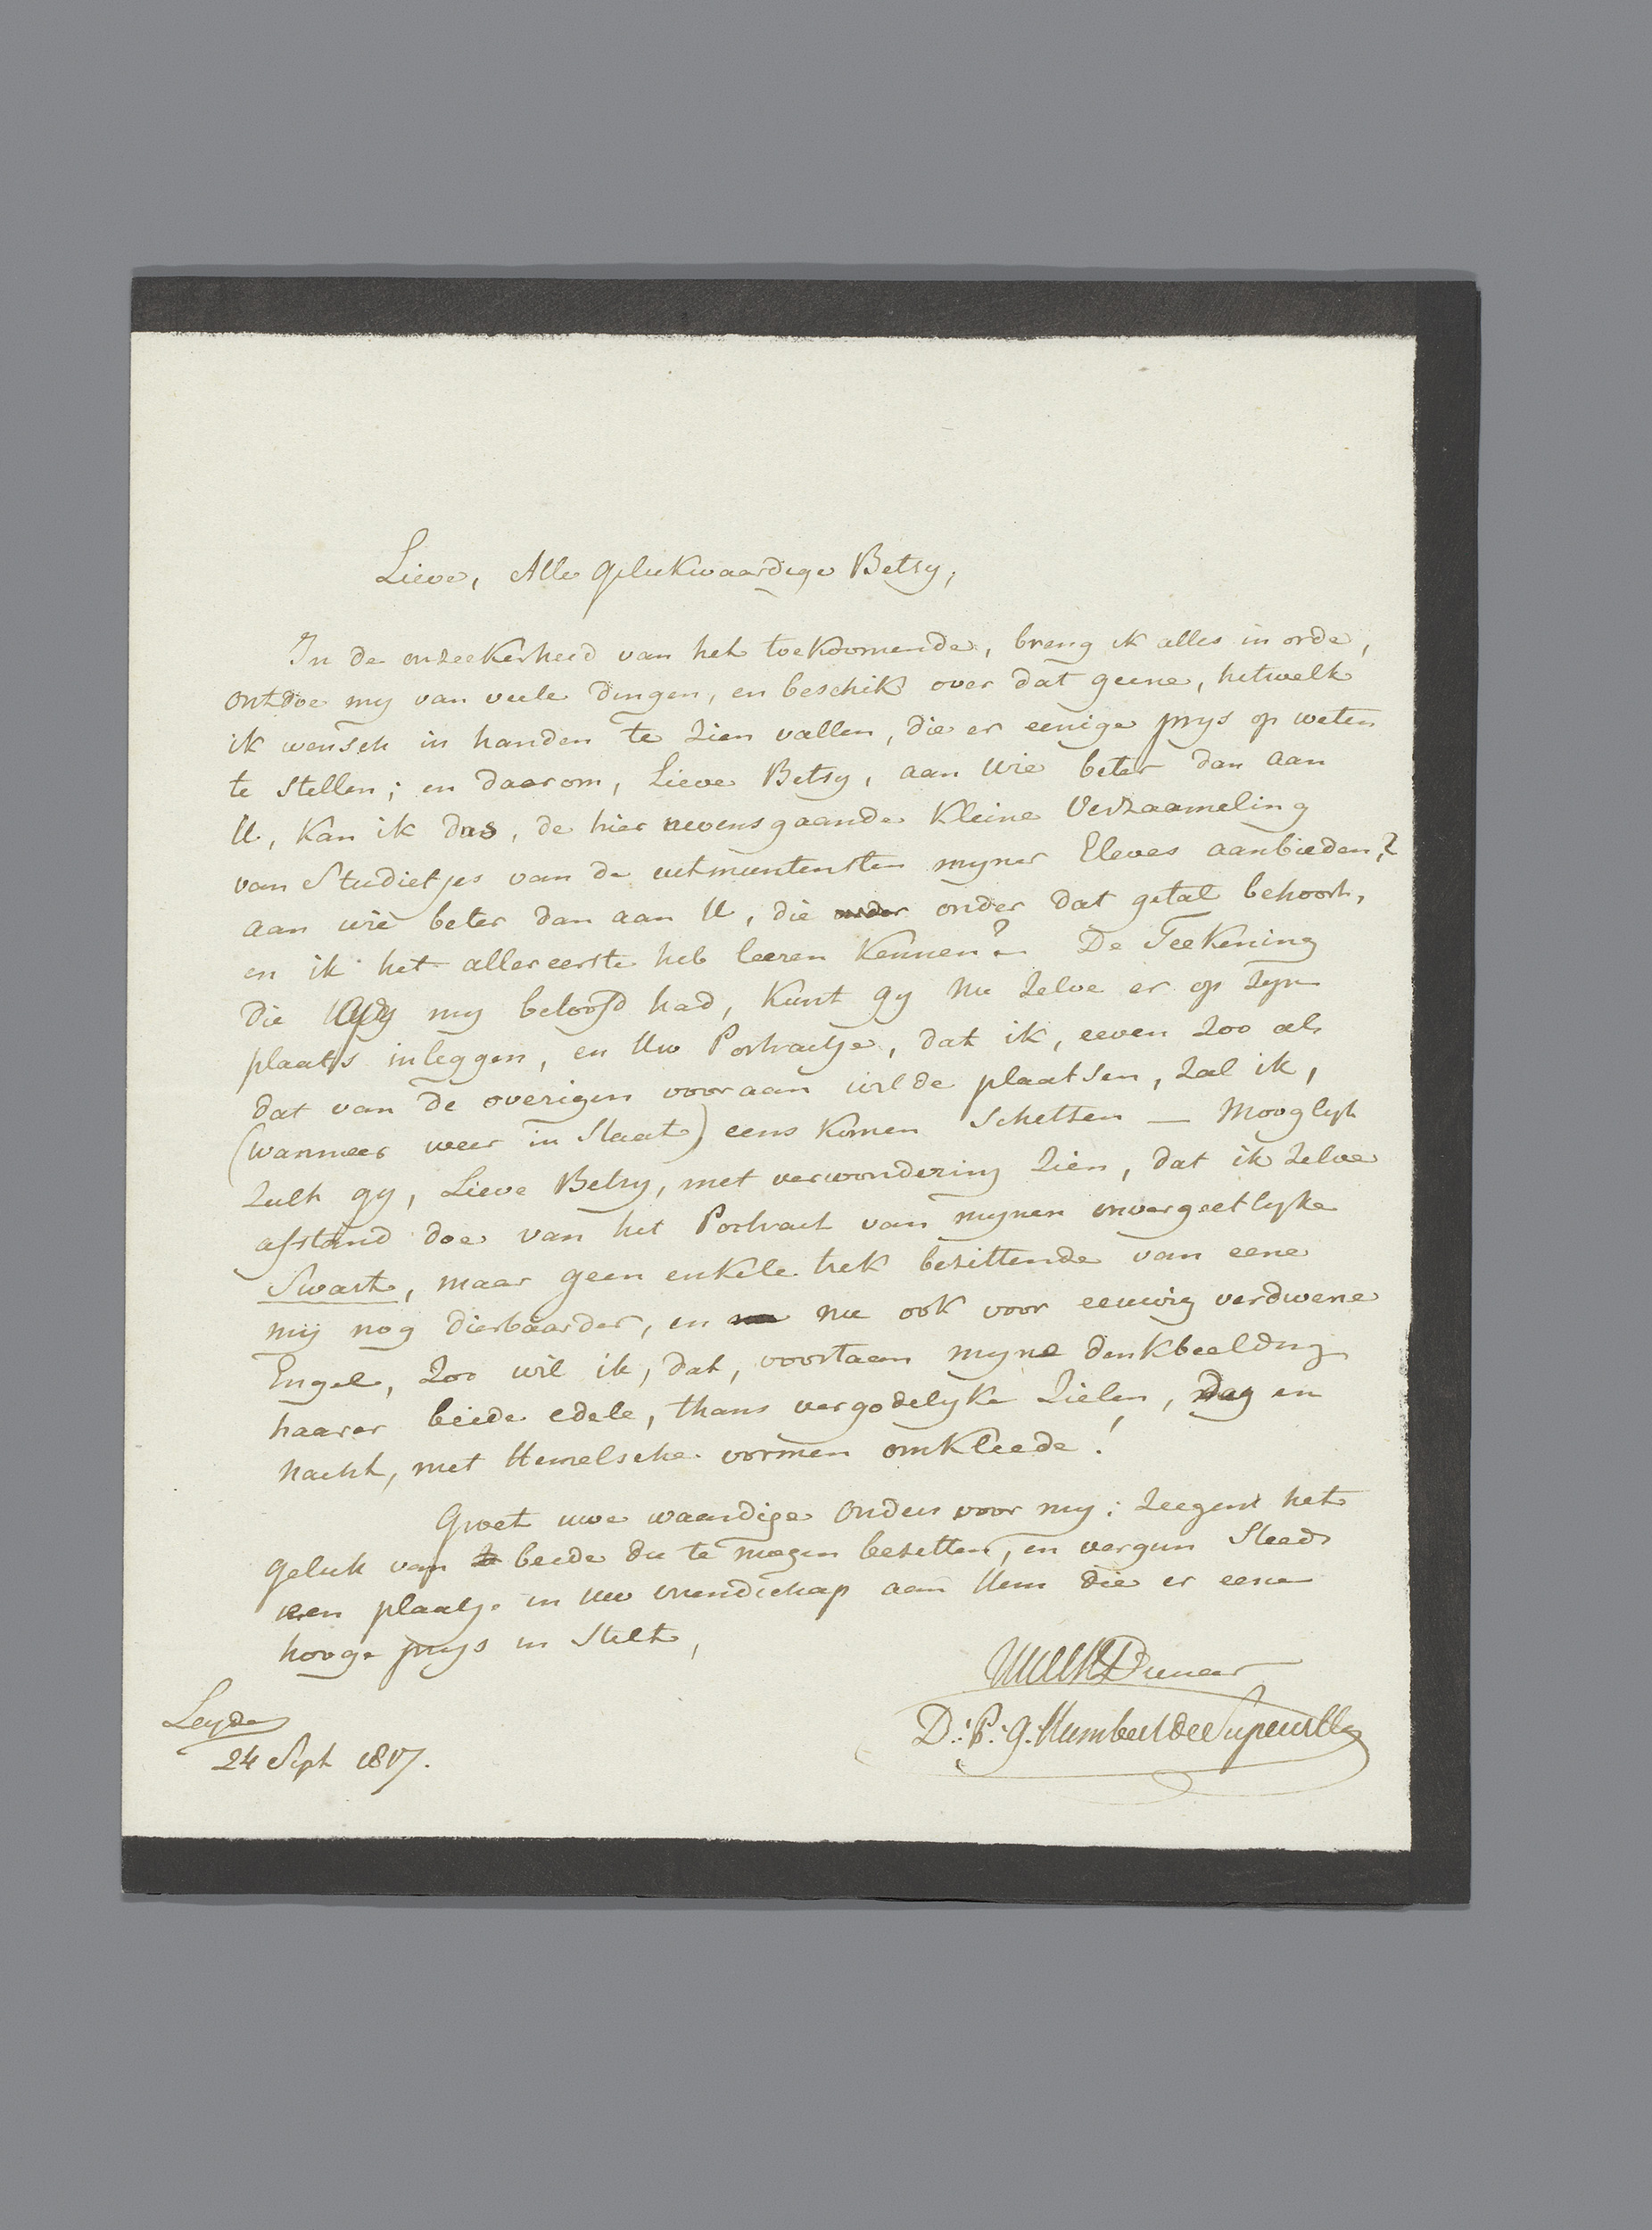 Lieve, Alle Gelukwaardige Betsy,
In de onzeekerheid van het toekoomende, breng ik alles in orde,
ontdoe my van veele dingen, en beschik over dat geene, hetwelk
ik wensch in handen te zien vallen, die er eenige prys op weten
te stellen; en daarom, Lieve Betsy, aan wie beter dan aan
U, kan ik dus, de hier nevensgaande kleine Verzaameling
van Studietjes van de uitmuntensten myner Eleves aanbieden?
aan wie beter dan aan U, die onder onder dat getal behoort,
en ik het allereerste heb leeren kennen? De Teekening
die my beloofd had, kunt gy nu zelve er op zyn
plaats inleggen, en Uw Portraitje, dat ik, eeven zoo als
dat van de overigen vooraan wilde plaatsen, zal ik,
(wanneer weer in Staat) eens komen Schetsen — Mooglyk
zult gy, Lieve Betsy, met verwondering zien, dat ik zelve
afstand doe van het Portrait van mynen onvergeetlyke
Swart, maar geen enkele trek bezittende van eene
mij nog dierbaarder, en nu ook voor eeuwig verdwene
Engel, zoo wil ik, dat, voortaan myne denkbeelding
haarer beide edele, thans vergodelyke Zielen, Dag en
Nacht, met Hemelsche vormen omkleede!
Groet uwe waardige Ouders voor my: zeegent het
geluk van beide die te moogen bezitten, en vergun Steeds
een plaatje in uw vriendschap aan Hem die er eene
hooge prys in Stelt,
UWEDDienaar
D: P: G: Humbert de Superville
Leyden
24 Sept 1817.